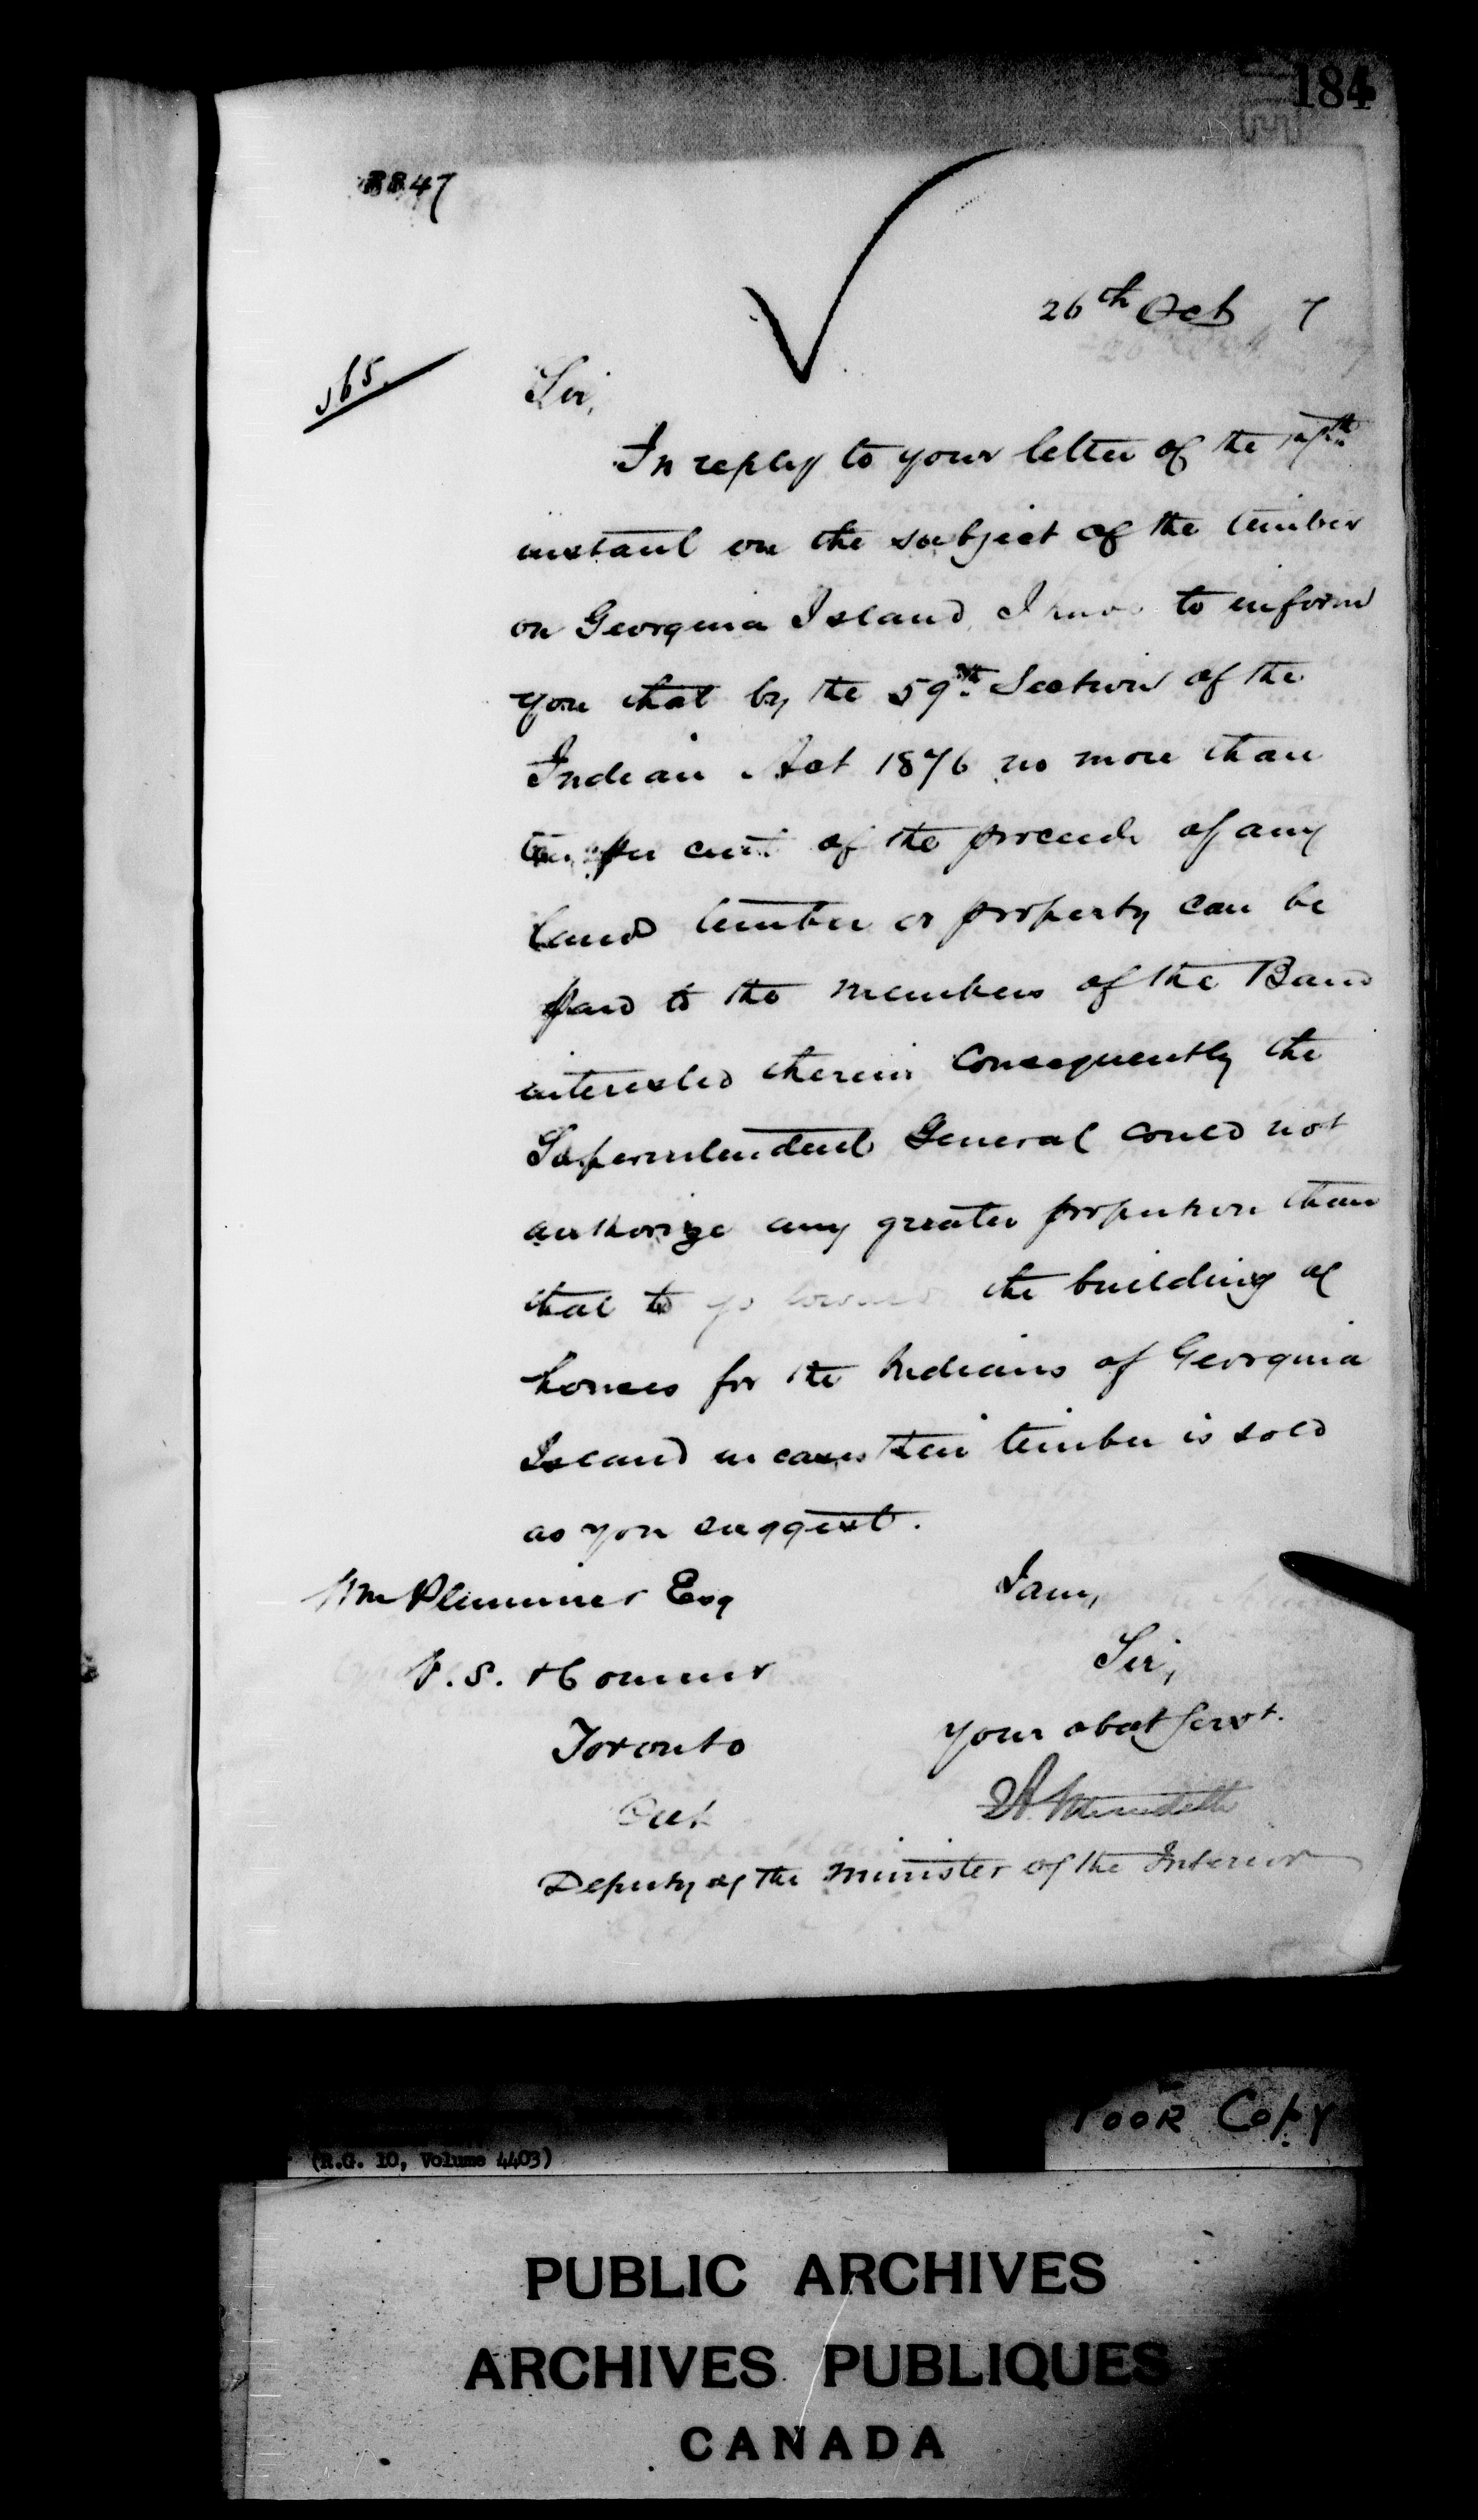 184
8847
26th Oct 7
565.
Sir,
In reply to your letter of the
instant on the subject of the timber
on Georgina Island I have to inform
you that by the 59th Section of the
Indian Act 1876 no more than
ten per cent of the proceeds of any
land timber or property can be
paid to the members of the Band
interested therein Consequently the
Superintendent General could not
authorize any greater proportion than
that to go towards the building of
houses for the Indians of Georgina
Island in case their timber is sold
as you suggest.
Wm Plummer Esq
I am,
V. S. & Commr
Sir,
Toronto
your obdt Servt.
Ont
Meredith
Deputy of the Minister of the Interior
Poor Copy
(R.G. 10, Volume 4403)
PUBLIC ARCHIVES
ARCHIVES PUBLIQUES
CANADA